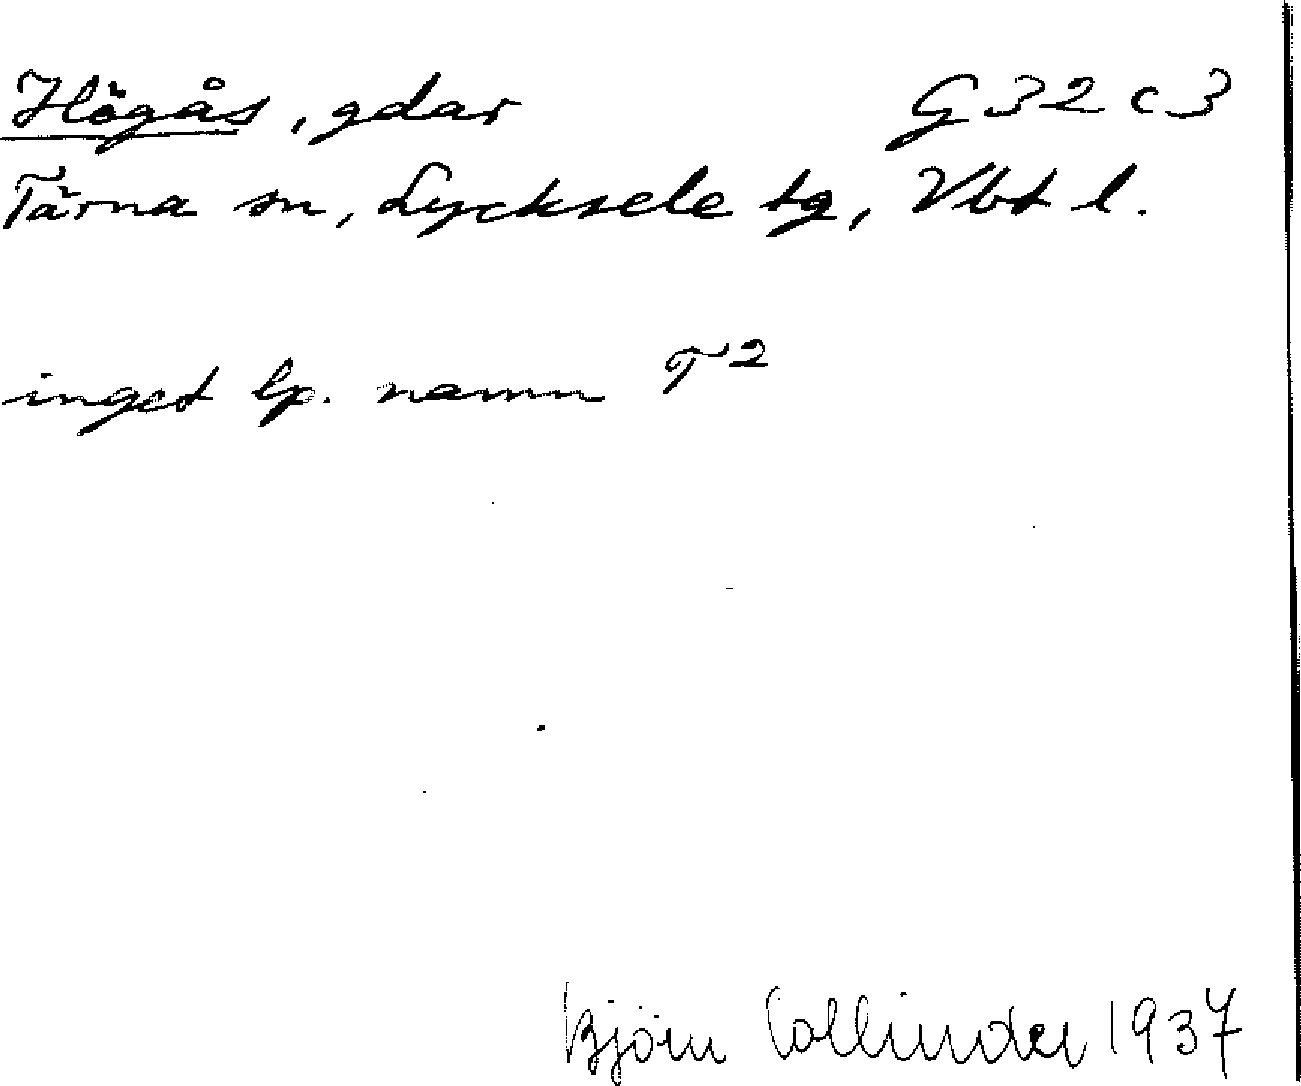 Högås, gdar G 32 c 3
Tärna sn, Lycksele tg, Vbt l.
inget lp. namn T²
Björn Collinder 1937